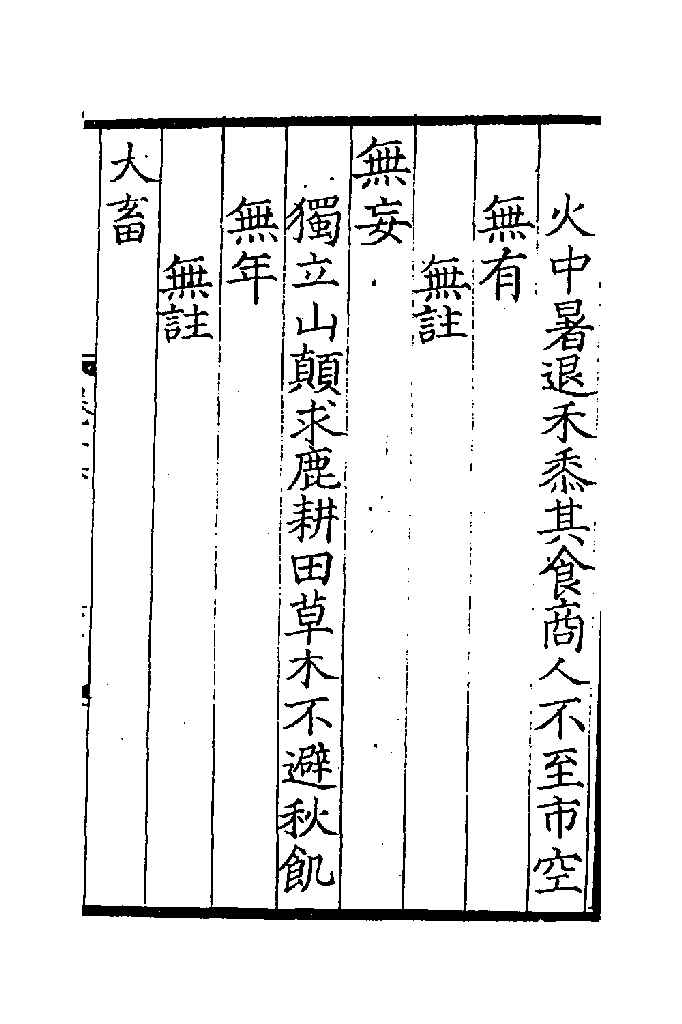 火中暑退禾黍其食商人不至市空
無有
無註
無妄
獨立山顛求鹿耕田草木不避秋飢
無年
無註
大畜